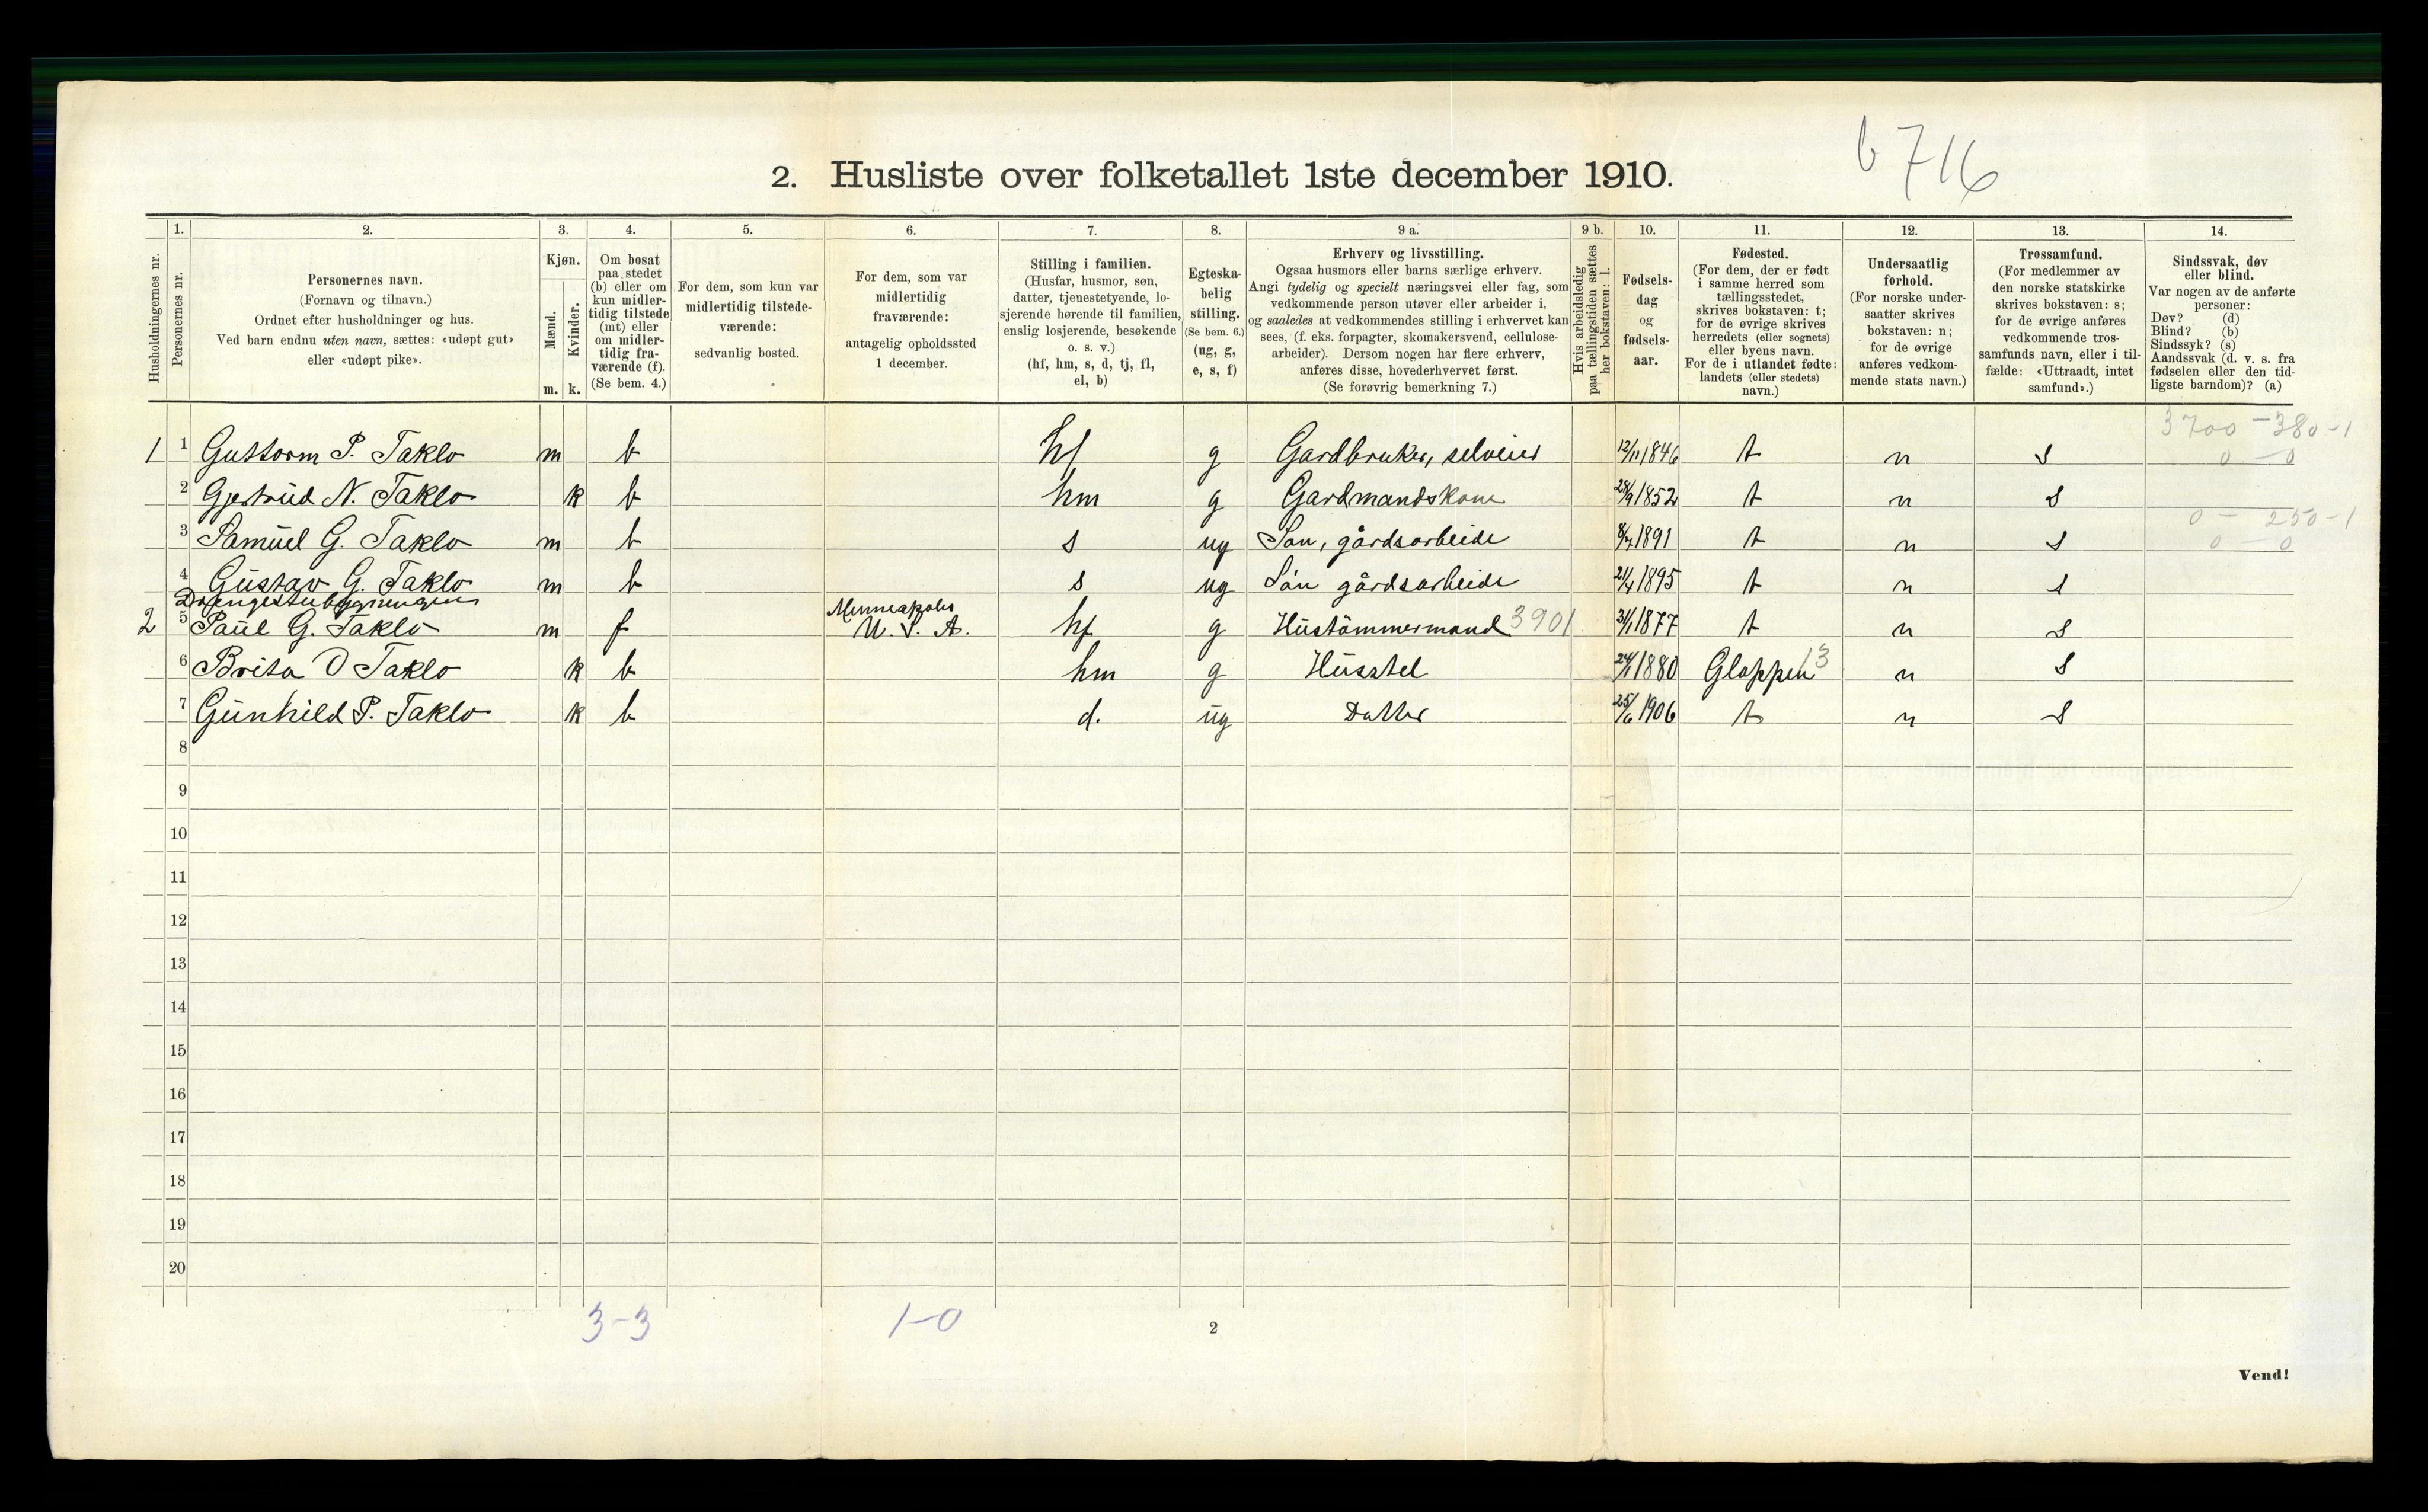 6716
2. Husliste over folketallet 1ste december 1910.
Husholdningernes nr.
1.
Personernes nr.
2.
Personernes navn.
(Fornavn og tilnavn.)
Ordnet efter husholdninger og hus.
Ved barn endnu uten navn, sættes: «udøpt gut»
eller «udøpt pike».
3.
Kjøn.
Mænd.
m.
Kvinder.
k.
4.
Om bosat
paa stedet
(b) eller om
kun midler-
tidig tilstede
(mt) eller
om midler-
tidig fra-
værende (f).
(Se bem. 4.)
5.
For dem, som kun var
midlertidig tilstede-
værende:
sedvanlig bosted.
6.
For dem, som var
midlertidig
fraværende:
antagelig opholdssted
1 december.
7.
Stilling i familien.
(Husfar, husmor, søn,
datter, tjenestetyende, lo-
sjerende hørende til familien,
enslig losjerende, besøkende
o. s. v.)
(hf, hm, s, d, tj, fl,
el, b)
8.
Egteska-
belig
stilling.
(Se bem. 6.)
(ug, g,
e, s, f)
9 a.
Erhverv og livsstilling.
Ogsaa husmors eller barns særlige erhverv.
Angi tydelig og specielt næringsvei eller fag, som
vedkommende person utøver eller arbeider i,
og saaledes at vedkommendes stilling i erhvervet kan
sees, (f. eks. forpagter, skomakersvend, cellulose-
arbeider). Dersom nogen har flere erhverv,
anføres disse, hovederhvervet først.
(Se forøvrig bemerkning 7.)
9 b.
Hvis arbeidsledig
paa tællingstiden sættes
her bokstaven: l.
10.
Fødsels-
dag
og
fødsels-
aar.
11.
Fødested.
(For dem, der er født
i samme herred som
tællingsstedet,
skrives bokstaven: t;
for de øvrige skrives
herredets (eller sognets)
eller byens navn.
For de i utlandet fødte:
landets (eller stedets)
navn.)
12.
Undersaatlig
forhold.
(For norske under-
saatter skrives
bokstaven: n;
for de øvrige
anføres vedkom-
mende stats navn.)
13.
Trossamfund.
(For medlemmer av
den norske statskirke
skrives bokstaven: s;
for de øvrige anføres
vedkommende tros-
samfunds navn, eller i til-
fælde: «Uttraadt, intet
samfund».)
14.
Sindssvak, døv
eller blind.
Var nogen av de anførte
personer:
Døv? (d)
Blind? (b)
Sindssyk? (s)
Aandssvak (d. v. s. fra
fødselen eller den tid-
ligste barndom)? (a)
3700 - 380 - 1
1 1 Guttorm P. Taklo m b hf g Gardbruker, selveier 12/11 1846 t n s 0 - 0
2 Gjertrud N. Taklo k b hm g Gardmandskone 28/9 1852 t n s
0 - 250 - 1
3 Samuel G. Taklo m b s ug Søn, gårdsarbeide 8/7 1891 t n s 0 - 0
4 Gustav G. Taklo m b s ug Søn gårdsarbeide 21/4 1895 t n s
Drengestubygningen
Minneapolis
2 5 Paul G. Taklo m f U. S. A. hf g Hustømmermand 3901 31/1 1877 t n s
6 Brita O Taklo k b hm g Husstel 24/1 1880 Gloppen 13 n s
7 Gunhild P. Taklo k b d. ug Datter 25/6 1906 t n s
8
9
10
11
12
13
14
15
16
17
18
19
20
3-3 1-0
2
Vend!